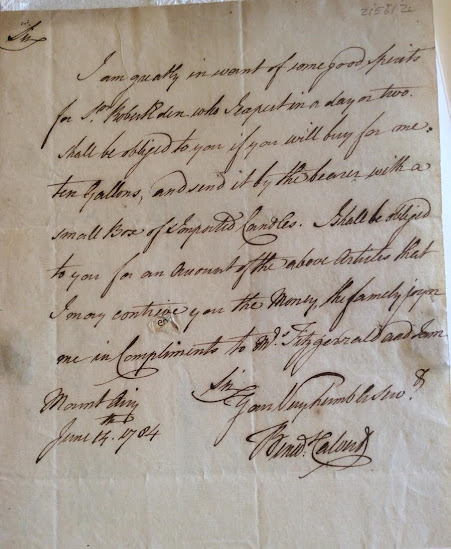 2158/2
Sir
I am greatly in want of some good Spirits
for Sr. Robert Eden who I expect in a day or two.
Shall be obliged to you if you will buy for me.
ten Gallons, and send it by the bearer with a
small Box of Imported Candles. I shall be obliged
to you for an Account of the above Articles that
I may contrive you the Money, the family joyn
me in Compliments to Mrs. Fitzgerrald and am
Sir
Your Very humble Serv.t
Mount Airy
June 14.th 1784
Bened.t Calvert